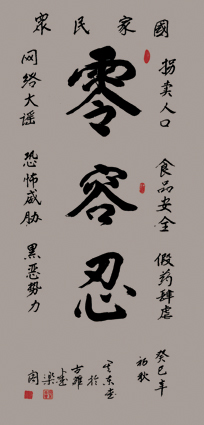 國家民眾
拐卖人口 食品安全 假药肆虐
零容忍
网络大谣 恐怖威胁 黑恶势力
癸巳年
初秋